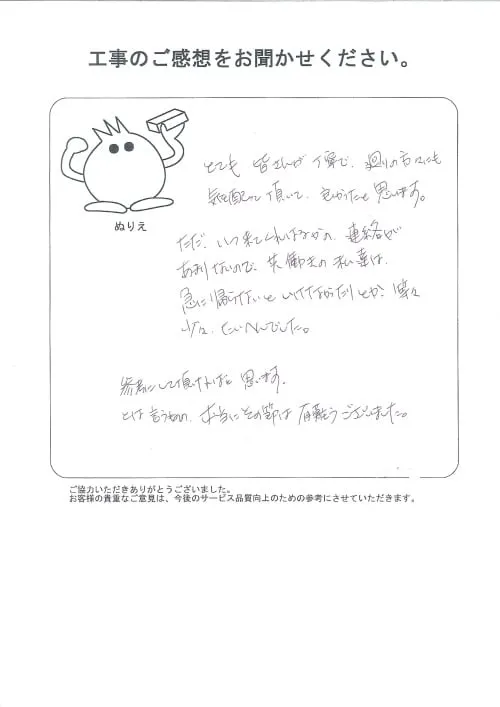 工事のご感想をお聞かせください。
ぬりえ
とても 皆さんが 丁寧で、廻りの方々にも
気を配って頂いて、良かったと思います。
ただ、いつ来てくれはるかの、連絡が
あまりないので、共働きの私達は、
急に帰らないといけなかったりとか、
少々、たいへんでした。
参考にして頂ければと 思います。
とは言うものの、本当にその節は 有難うございました。
ご協力いただきありがとうございました。
お客様の貴重なご意見は、今後のサービス品質向上のための参考にさせていただきます。